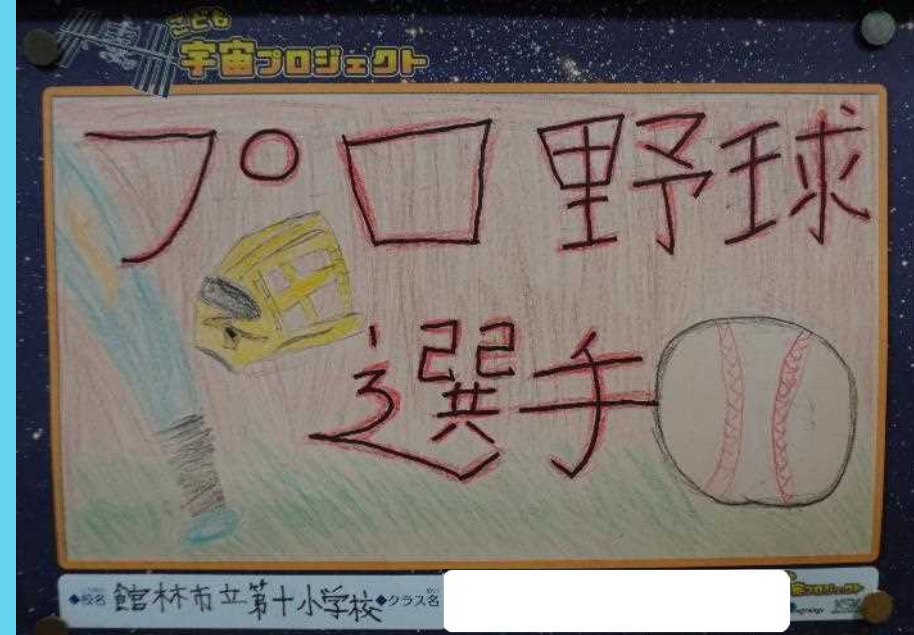 こども
宇宙プロジェクト
プロ野球
選手
◆校名 館林市立第十小学校 ◆クラス名
宇宙プロジェクト